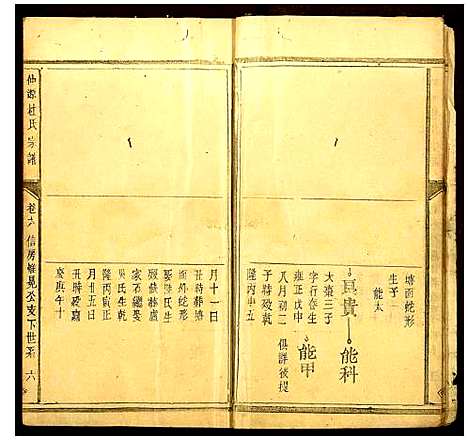 塘面蛇形
生子一
能太
貞貴 能科
能甲
大棗三子
字行春生
雍正戊申
八月初二 俱詳後提
子時歿乾
隆丙申五
月十一日
丑時葬塘
面外蛇形
娶陳氏生
歿葬未盧
家石繼娶
吳氏生乾
隆丙寅正
月廿五日
丑時歿嘉
慶庚午十
仲源杜氏宗譜
卷六 信房帷晃公支下世系 六